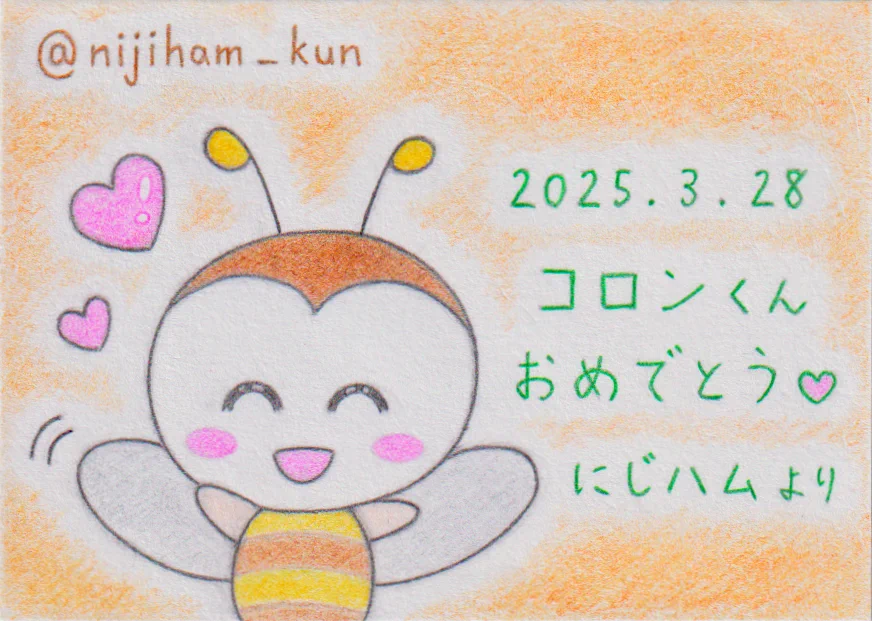 @nijiham_kun
2025.3.28
コロンくん
おめでとう♡
にじハムより